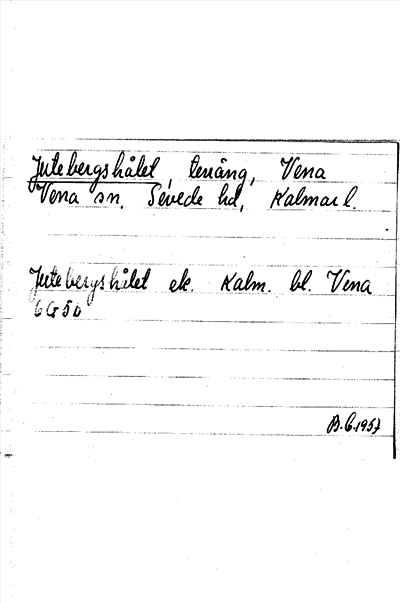 Jutebergshålet, terräng, Vena
Vena sn. Sevede hd, Kalmar l.
Jutebergshålet ek. Kalm. bl. Vena
6G5b
B.G.1957